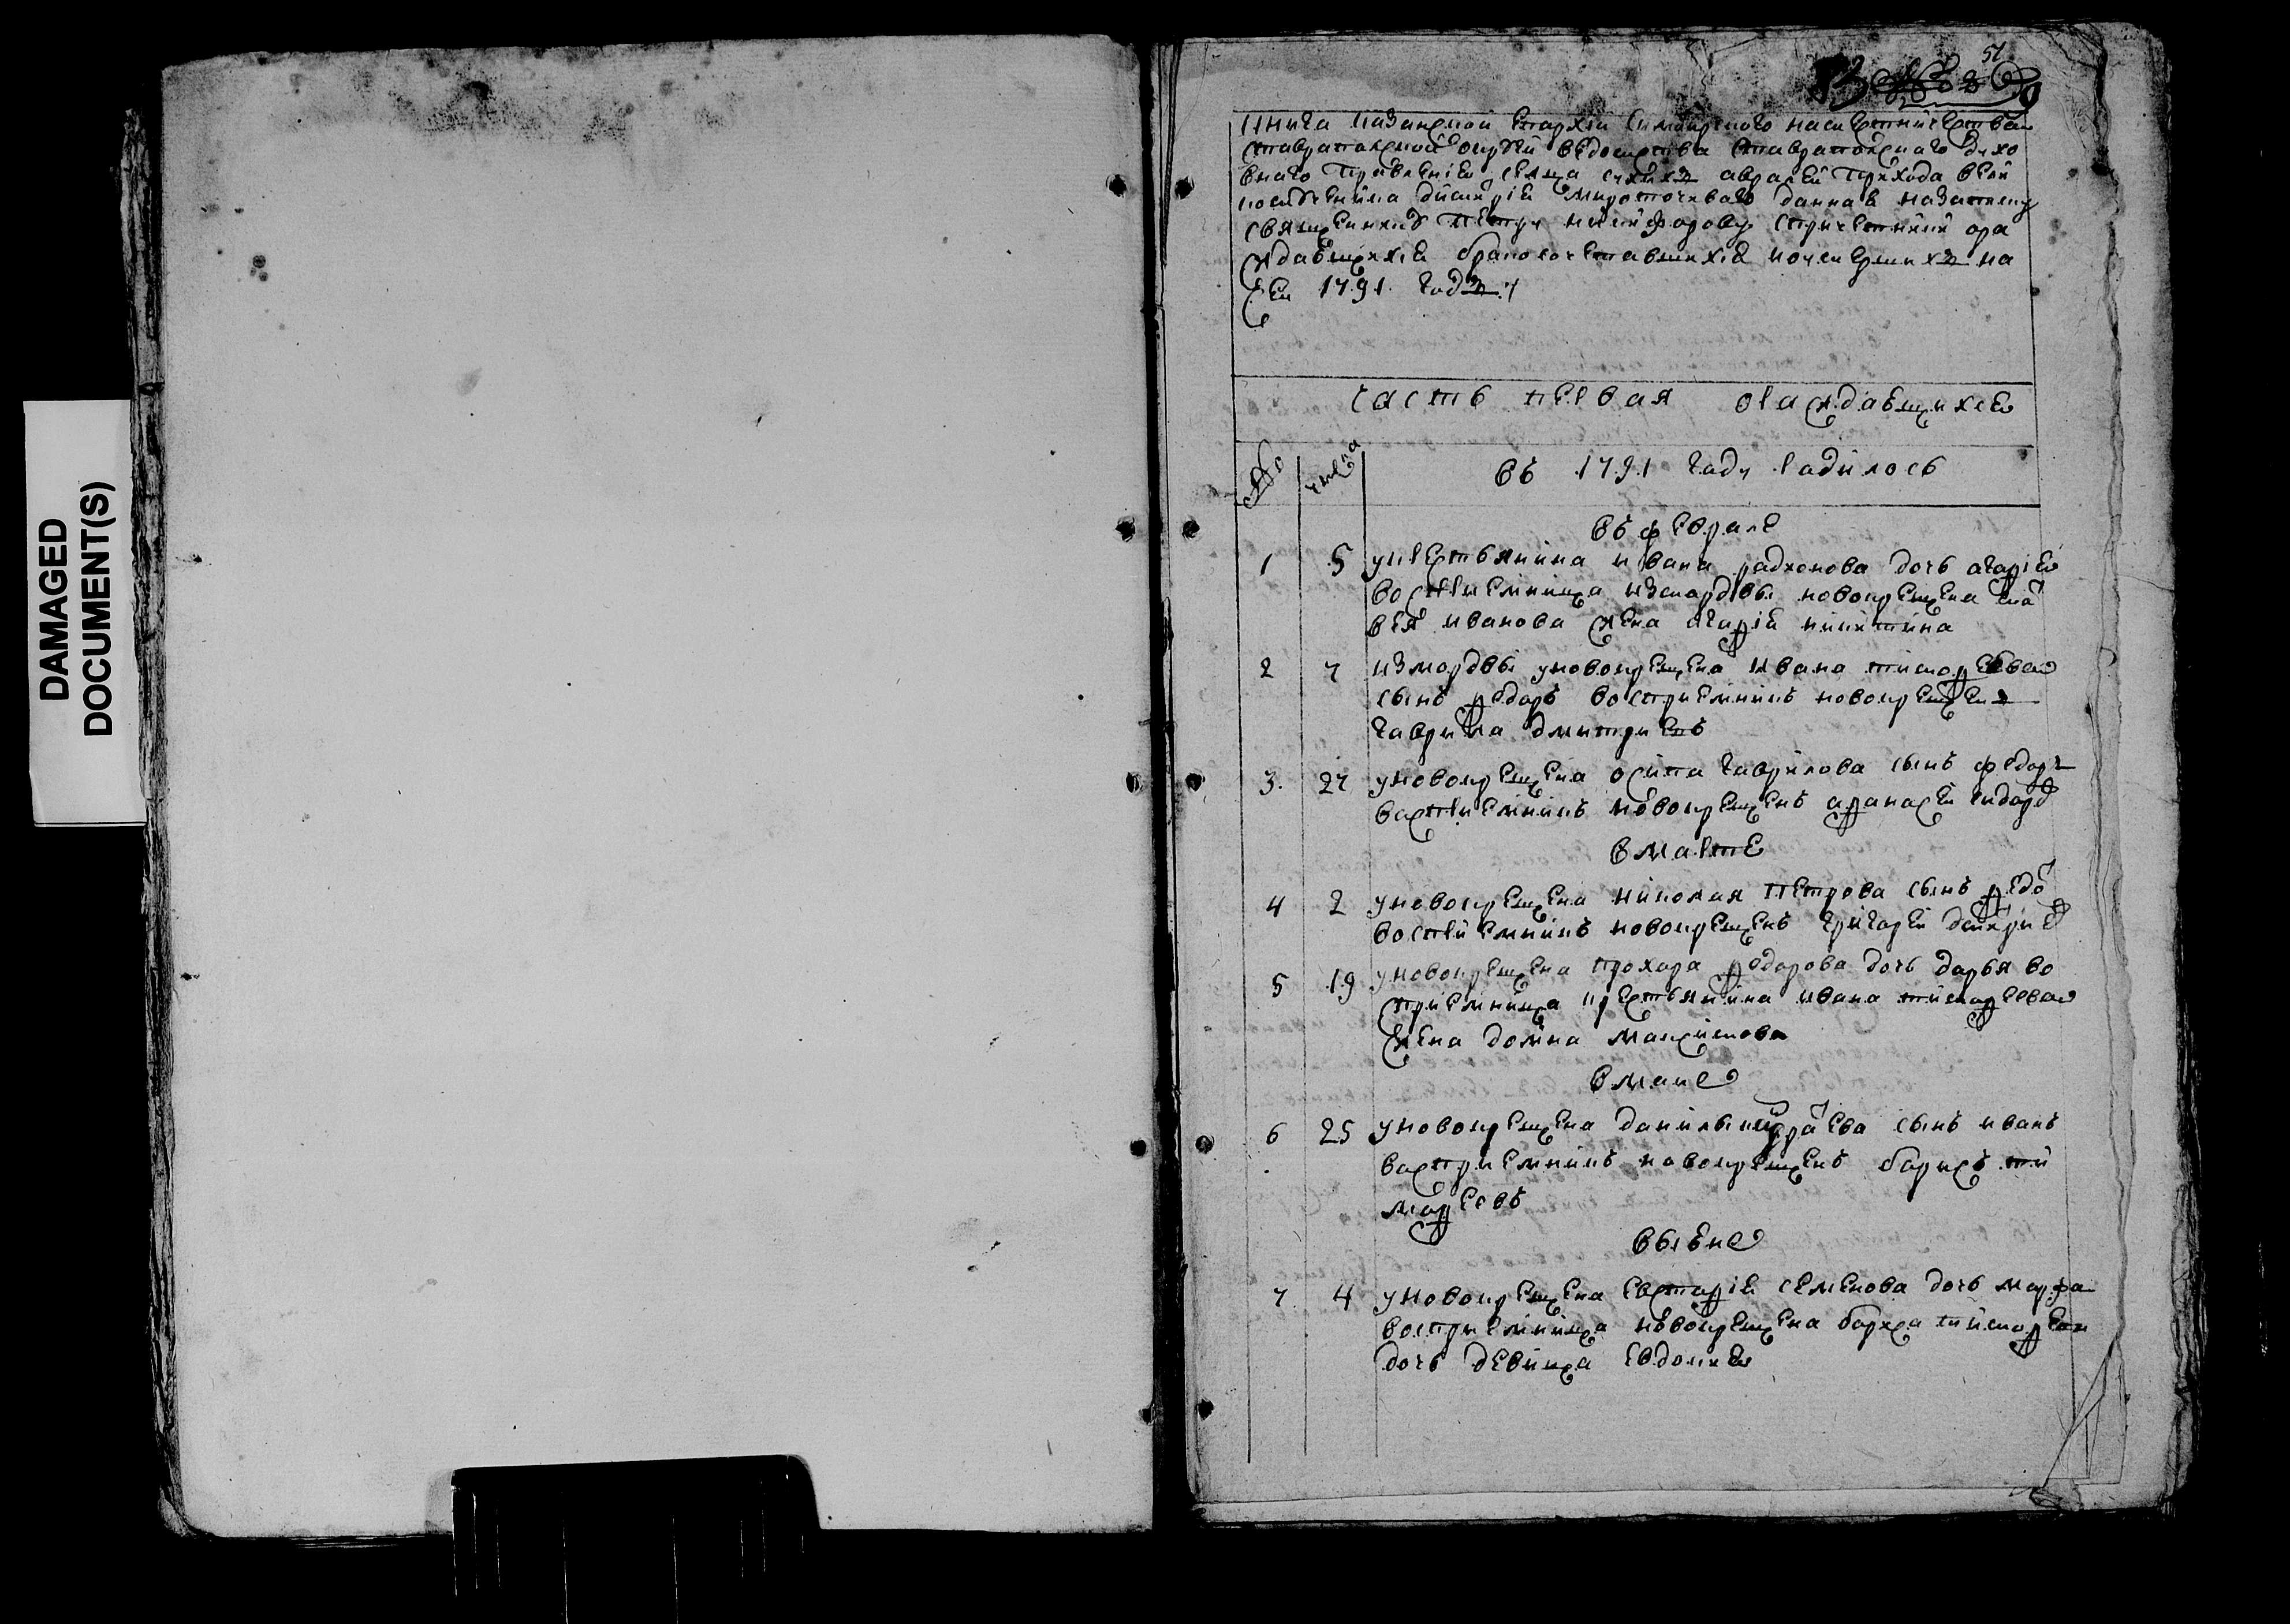 DAMAGED
DOCUMENT(S)
51
53
книга казанской епархии симбирского наместничества
ставропольской округи ведомства ставропольского духо
внаго правления села сухихъ авралей прихода церкви
мироточеваго данная
священнику петру никифорову спричетники оро
ждавшихся бракосочетавшихся иумершихъ на
сей 1791 годъ
часть первая орождавшихся
№
числа
въ 1791 году радилось
въ феврале
1 5 укрестьянина ивана радионова дочь агафия
восприемница измордвы новокрещена
иванова жена агафия никитина
2 7 измордвы уновокрещена ивана тимофеева
сынъ федоръ восприемникъ новокрещенъ
гаврила дмитриевъ
3. 27 уновокрещена осипа гаврилова сынъ федоръ
васприемникъ новокрещенъ афанасей сидоро
в марте
4 2 уновокрещена николая петрова сынъ федо
восприемникъ новокрещенъ григорей
5 19 уновокрещена прохора федорова дочь дарья во
сприемница крестьянина ивана тимофеева
жена домна максимова
в мае
6 25 уновокрещена данилы сынъ иванъ
васприемникъ новокрещенъ борисъ ти
мофеевъ
выюне
7 4 уновокрещена евстафия семенова дочь марфа
восприемница новокрещена бориса тимофеев
дочь девица евдокия